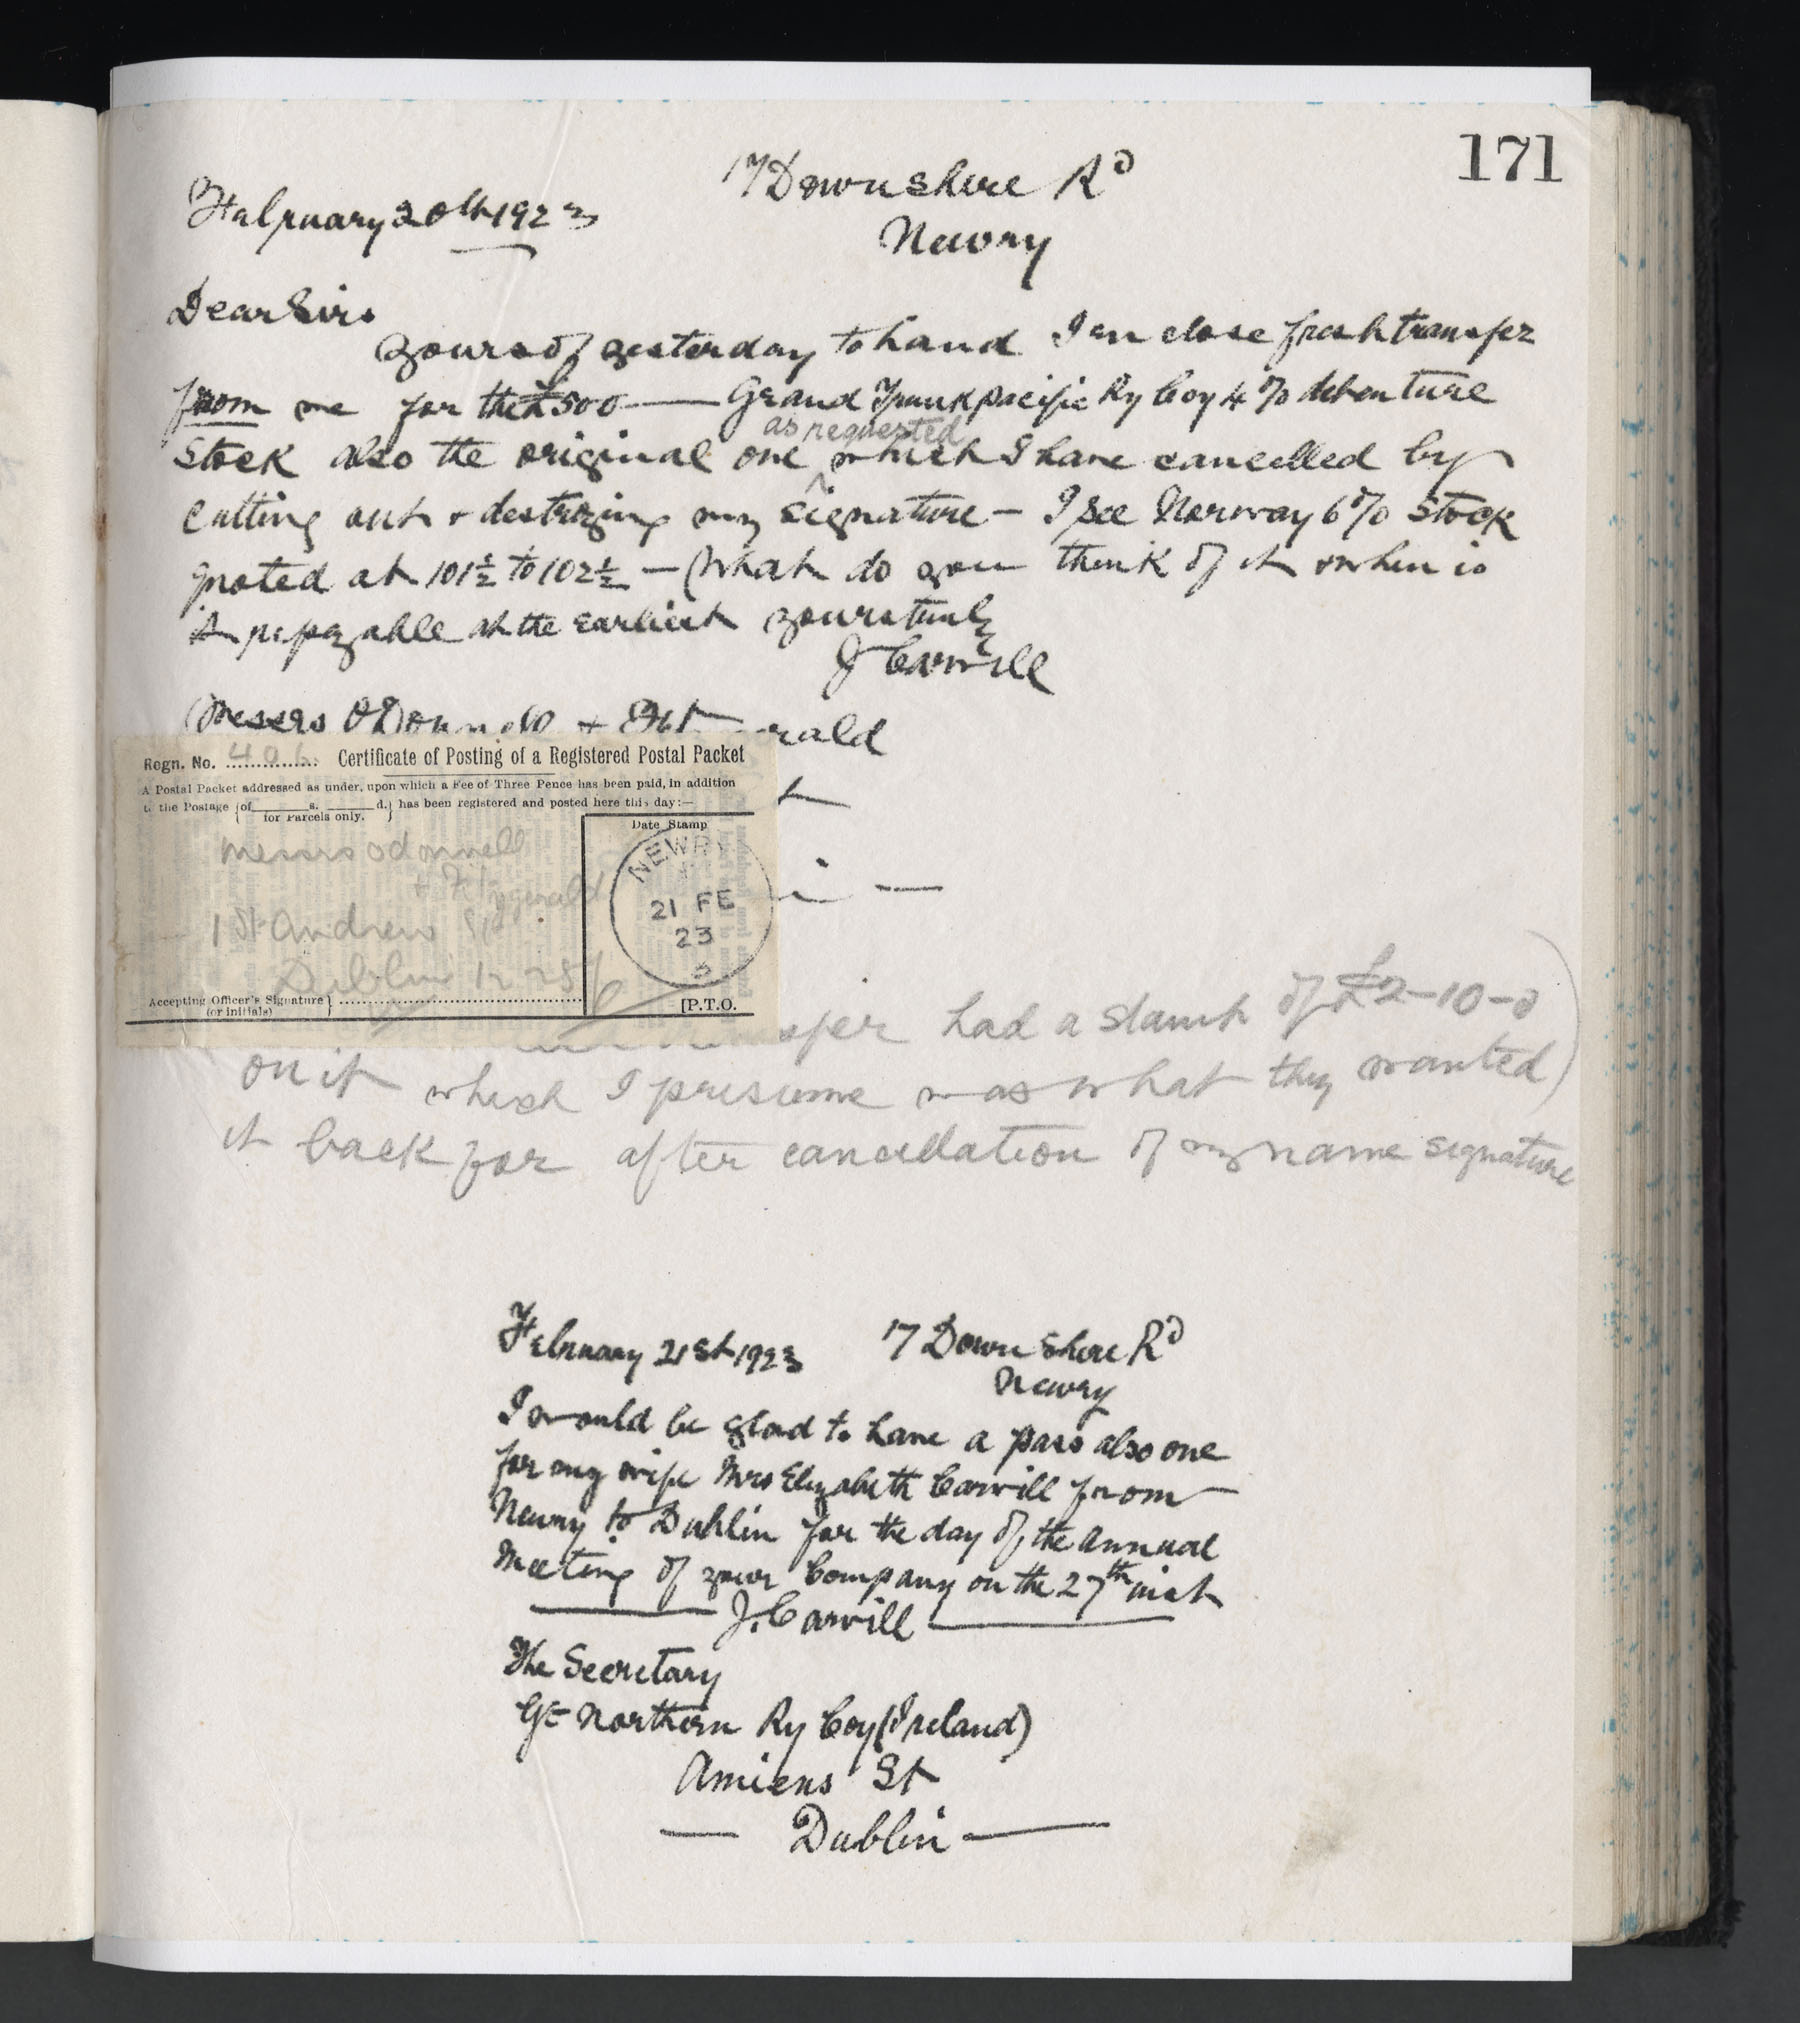 171
17 Downshire Rd
February 20th 1923
Newry
Dear Sirs
yours of yesterday to hand I enclose fresh transfer
from me for the £500 — Grand Trunk pacific Ry Coy 4% debenture
as requested
stock also the original one which I have cancelled by
cutting out + destroying my signature — I see Norway 6% Stock
quoted at 101½ to 102½ — What do you think of it & when is
it repayable at the earliest yours truly
J Carvill
Messrs O'Donnell + Fitzgerald
Regn. No. 406 Certificate of Posting of a Registered Postal Packet
A Postal Packet addressed as under, upon which a Fee of Three Pence has been paid, in addition
to the Postage {of s. d.} has been registered and posted here this day:—
for Parcels only.
Date Stamp
Messrs O'donnell
+ Fitzgerald
1 St Andrew St
Dublin
NEWRY
21 FE
23
Accepting Officer's Signature}
(or initials)
[P.T.O.
had a stamp of £2-10-0
on it which I presume was what they wanted
it back for after cancellation of my name signature
February 21st 1923 17 Downshire Rd
Newry
I would be glad to have a pass also one
for my wife Mrs Elizabeth Carvill from
Newry to Dublin for the day of the annual
Meeting of your Company on the 27th inst
J. Carvill
The Secretary
Gt Northern Ry Coy (Ireland)
Amiens St
Dublin